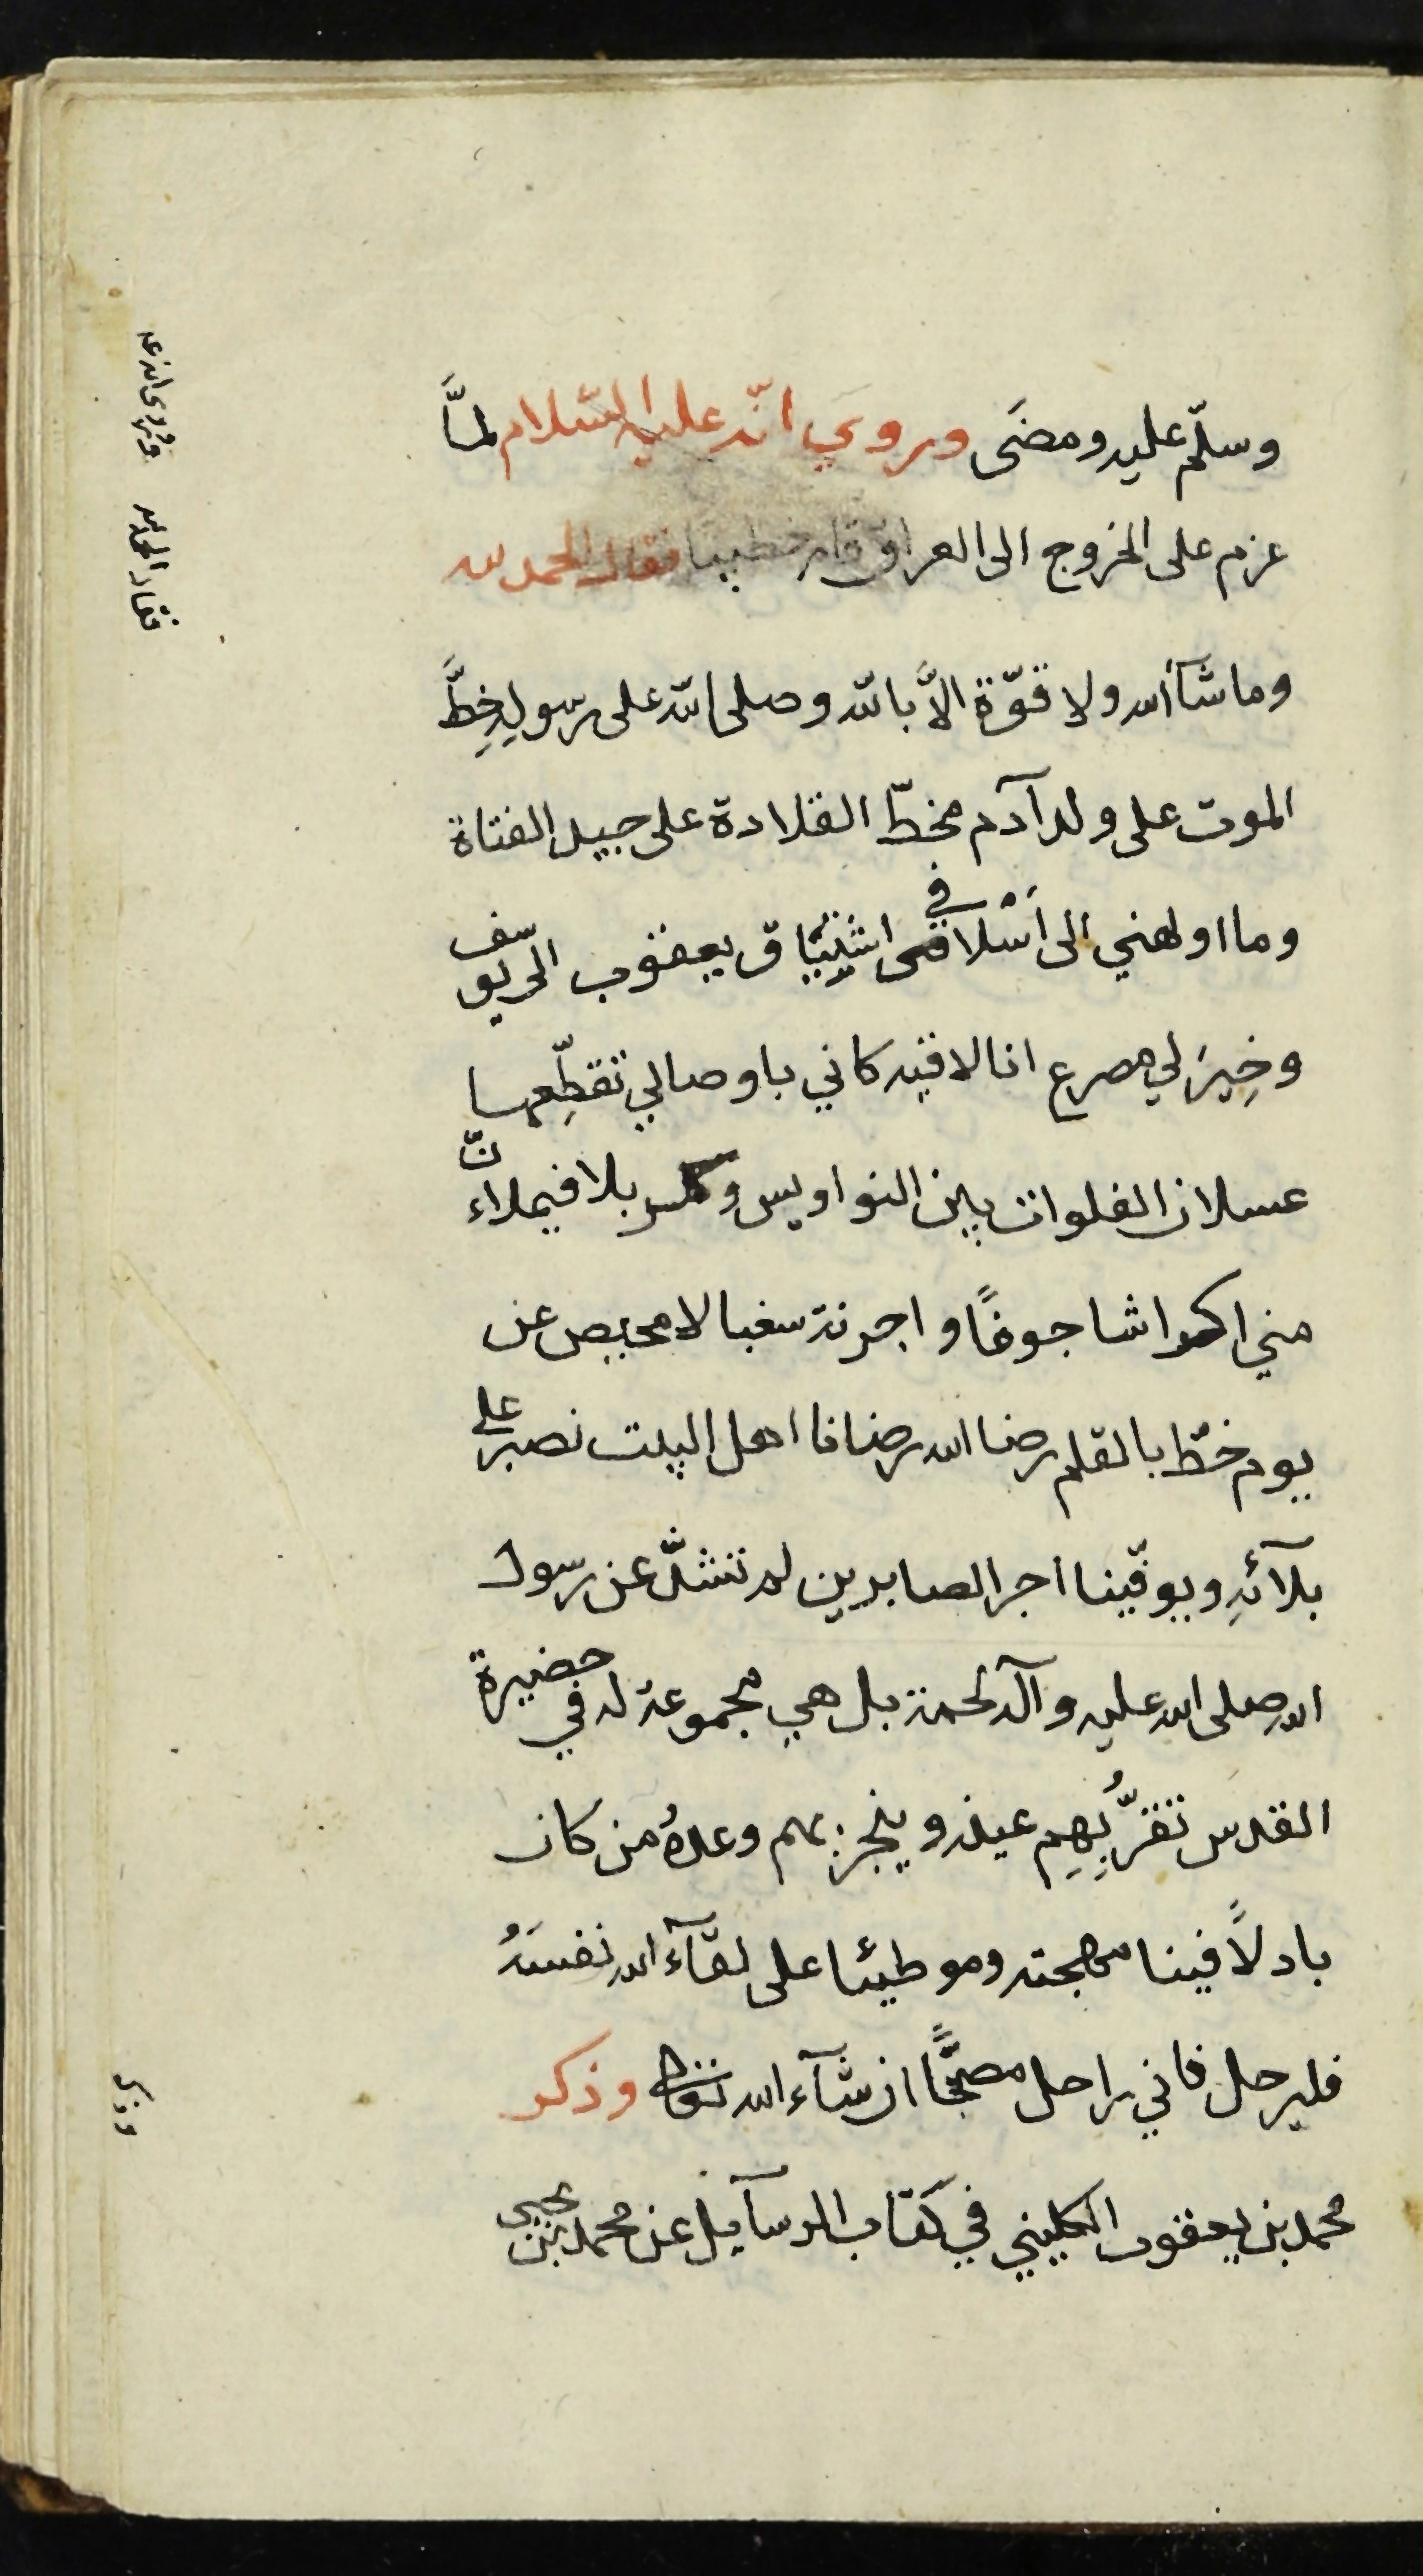 وسلّم عليه ومضَى وروي انّه عليه السّلام لمَّا
عزم على الخروج الى العراق قام خطيبا فقال الحمد لله
وما شآء الله ولا قوّة الاَّ بالله وصلى الله على رسولهِ خِطَّ
الموت على ولد آدم مخطّ القلادة على جيد الفتاة
وما اولهني الى اَسْلافي اشتياق يعقوب الى يوسف
وخِيرَ لي مصرع انا لاقيه كاني باوصالي تقطِّعها
عسلان الفلوات بين النواويس وكربلا فيملاءنّ
مني اكراشا جوفًا واجربة سغبا لا محيص عن
يوم خطّ بالقلم رضا الله رضانا اهل البيت نصبر على
بلآئهِ ويوفّينا اجر الصابرين لم تشذّ عن رسول
الله صلى الله عليه وآله لحمة بل هي مجموعة له في حضيرة
القدس تقرُّ بِهِم عينه وينجز بهم وعدهُ من كان
بادلاً فينا مهجته وموطيئا على لقآء الله نفسَهُ
فليرحل فاني راحل مصبحًا ان شآء الله وذكر
محمد بن يعقوب الكليني في كتاب الرسآيل عن محمد بن يحيى
وروى انه عليه
فقال الحمد لله
وذكر